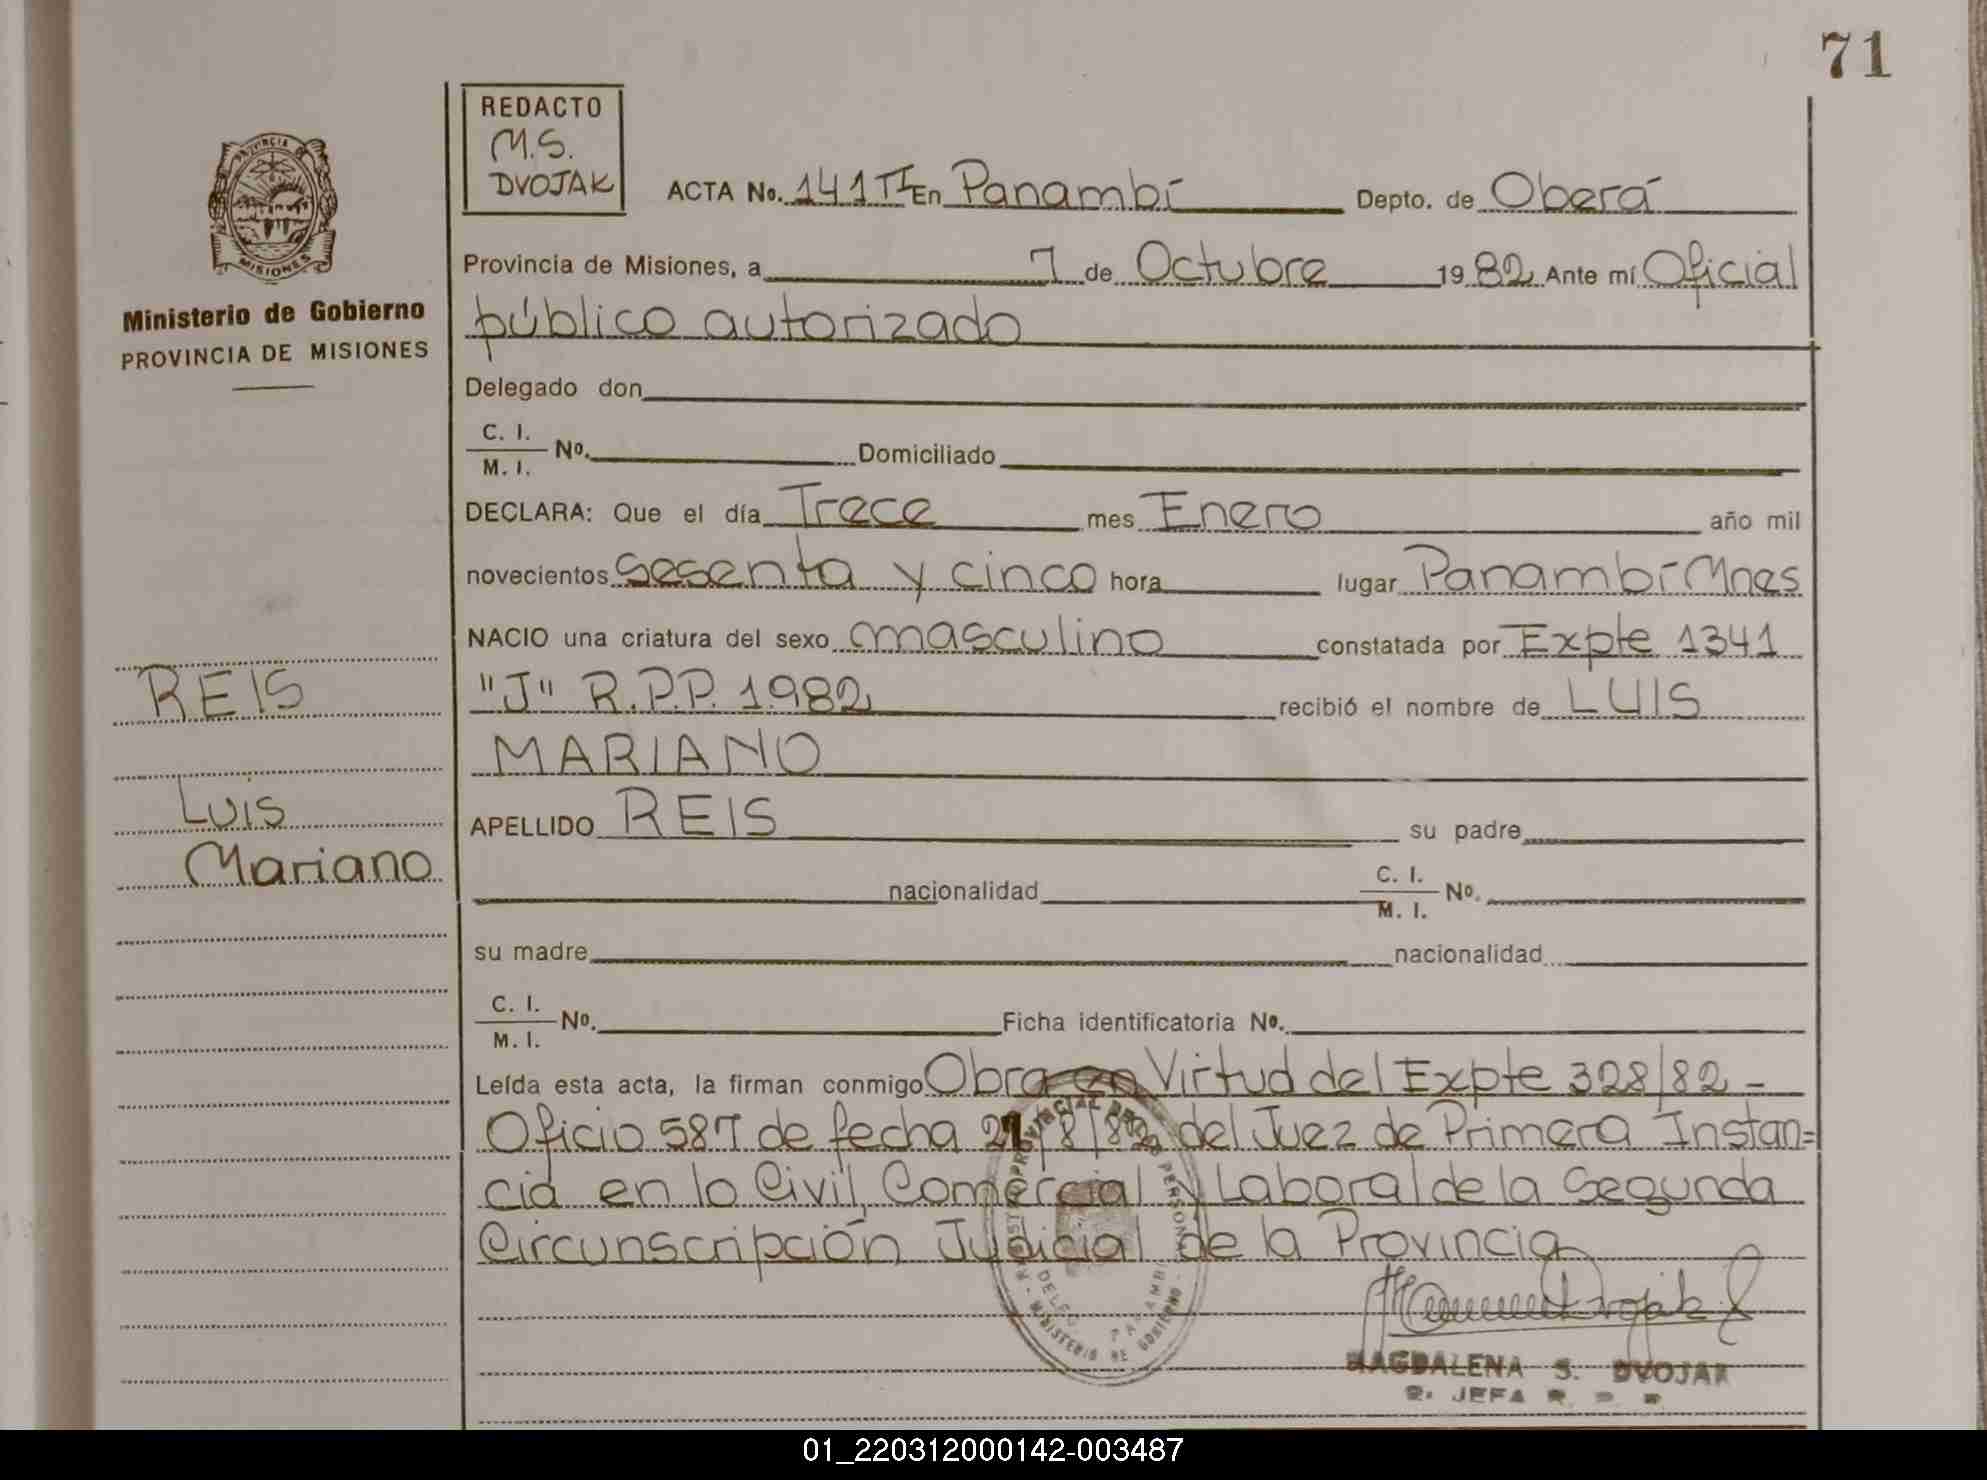 71
REDACTO
M.S.
DVOJAK
ACTA No. 141 TI En Panambí Depto. de Oberá
PROVINCIA DE
MISIONES
Ministerio de Gobierno
PROVINCIA DE MISIONES
Provincia de Misiones, a 7 de Octubre 1982 Ante mí Oficial
público autorizado
Delegado don
C. I.
M. I. No. Domiciliado
DECLARA: Que el día Trece mes Enero año mil
novecientos sesenta y cinco hora lugar Panambí Mnes
NACIO una criatura del sexo masculino constatada por Expte 1341
"J" R.P.P. 1982 recibió el nombre de LUIS
MARIANO
REIS
Luis
Mariano
APELLIDO REIS su padre
nacionalidad C. I.
M. I. No.
su madre nacionalidad
C. I.
M. I. No. Ficha identificatoria No.
Leída esta acta, la firman conmigo Obra en Virtud del Expte 328/82 -
Oficio 587 de fecha /8/82 del Juez de Primera Instan=
cia en lo Civil, Comercial y Laboral de la Segunda
Circunscripción Judicial de la Provincia
MINISTERIO DE GOBIERNO
PANAMBI
MAGDALENA S. DVOJAK
JEFA R. P. P.
01_220312000142-003487